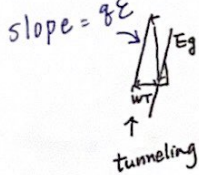 slope = qε
Eg
WT
tunneling